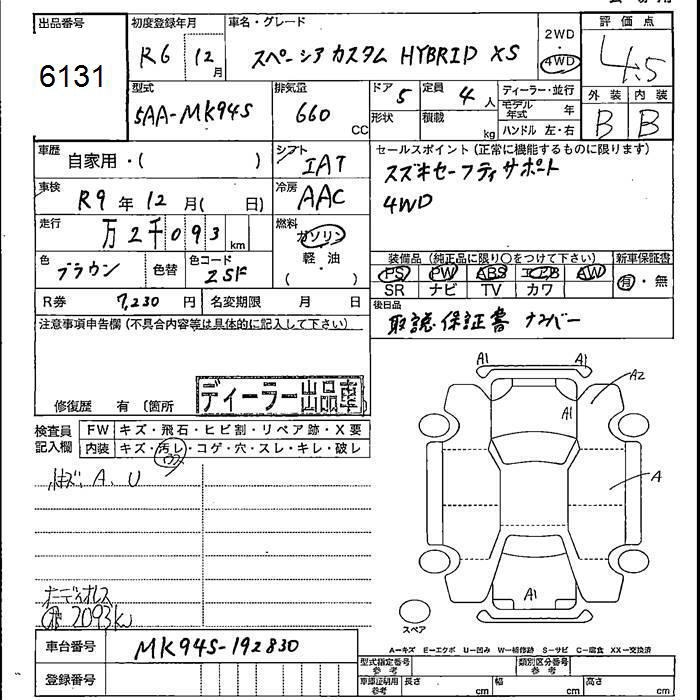 出品番号
6131
初度登録年月
R6 12月
車名・グレード
スペーシア カスタム HYBRID XS
2WD
4WD
評価点
4.5
外装 内装
B B
型式
5AA-MK94S
排気量
660 CC
ドア 5
形状
定員 4 人
積載 kg
ディーラー・並行
モデル年式 年
ハンドル 左・右
車歴 自家用・( )
シフト IAT
車検 R9年12月( 日)
冷房 AAC
走行 万2千093 km
燃料
ガソリン
軽・油
( )
色 ブラウン 色替 色コード ZSF
R券 7,230 円 名変期限 月 日
セールスポイント(正常に機能するものに限ります)
スズキセーフティサポート
4WD
装備品(純正品に限り○をつけて下さい) 新車保証書
PS PW ABS エアB AW 有・無
SR ナビ TV カワ
後日品
取説・保証書 ナンバー
注意事項申告欄(不具合内容等は具体的に記入して下さい)
ディーラー出品車
修復歴 有(箇所
検査員記入欄
FW キズ・飛石・ヒビ割・リペア跡・X要
内装 キズ・汚レ・コゲ・穴・スレ・キレ・破レ
A、U
オーディオレス
2093km
A1 A1
A2
A1
A
A1
スペア
A=キズ E=エクボ U=凹み W=補修跡 S=サビ C=腐食 XX=交換済
車台番号 MK94S-192830
登録番号
型式指定番号 参考
類別区分番号 参考
車庫証明用 参考 長さ cm 幅 cm 高さ cm